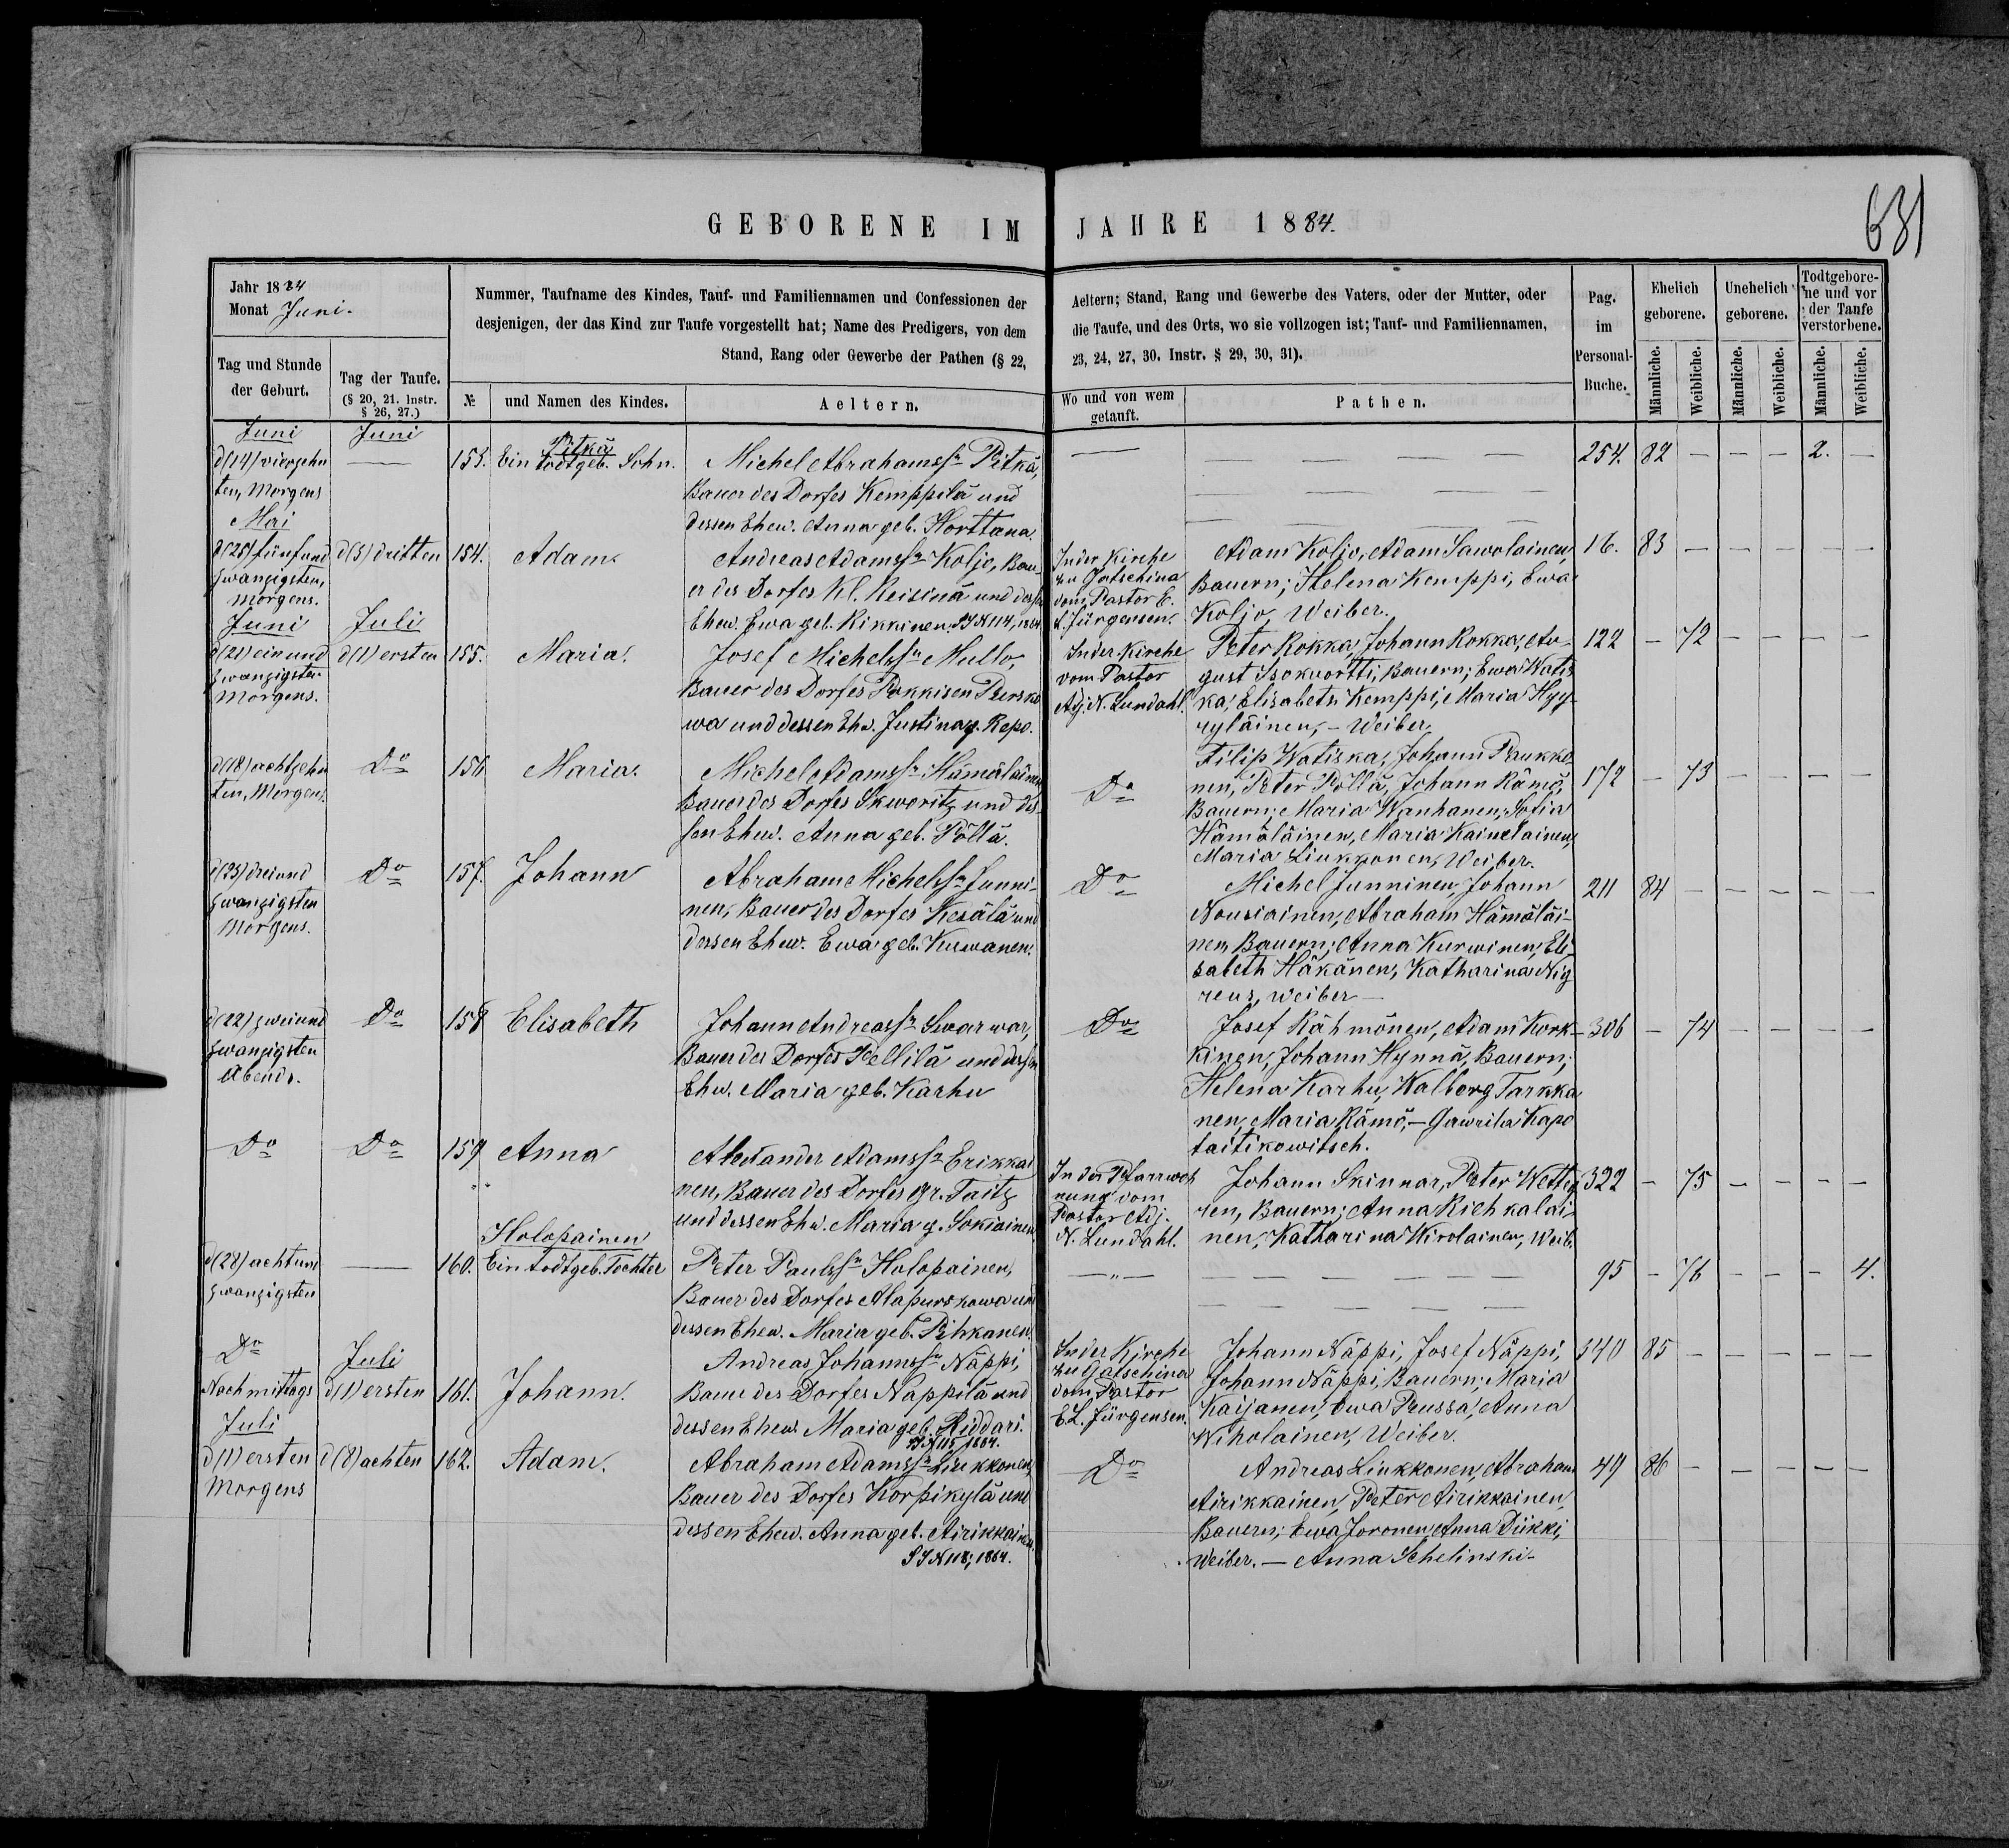 GEBORENE IM JAHRE 1884.
631
Jahr 1884
Monat Juni.
Nummer, Taufname des Kindes, Tauf- und Familiennamen und Confessionen der
desjenigen, der das Kind zur Taufe vorgestellt hat; Name des Predigers, von dem
Stand, Rang oder Gewerbe der Pathen (§ 22,
Aeltern; Stand, Rang und Gewerbe des Vaters, oder der Mutter, oder
die Taufe, und des Orts, wo sie vollzogen ist; Tauf- und Familiennamen,
23, 24, 27, 30. Instr. § 29, 30, 31).
Pag.
im
Personal-
Buche.
Ehelich
geborene.
Unehelich
geborene.
Todtgebore-
ne und vor
der Taufe
verstorbene.
Tag und Stunde
der Geburt.
Tag der Taufe.
(§ 20, 21. Instr.
§ 26, 27.)
№
und Namen des Kindes.
Aeltern.
Wo und von wem
getauft.
Pathen.
Männliche.
Weibliche.
Männliche.
Weibliche.
Männliche.
Weibliche.
Juni
d(14) vierzehn
ten, Morgens
Juni
—
153.
Pitkä
Ein todtgeb. Sohn.
Michel Abrahamssn Pitkä,
Bauer des Dorfes Kemppilä und
dessen Ehew. Anna geb. Horttana.
—
— —
254. 82 — — — 2. —
Mai
d(25) fünfund
zwanzigsten,
Morgens.
d(3) dritten
154.
Adam.
Andreas Adamssn Koljo, Bau-
er des Dorfes Kl. Reisinä und dessen
Ehew. Ewa geb. Kikkinen. SJ N 114, 1864
In der Kirche
zu Gatschina
vom Pastor E.
L. Jürgensen.
Adam Koljo, Adam Sawolainen,
Bauern; Helena Kemppi, Ewa
Koljo, Weiber.
16. 83 — — — — —
Juni
d(21) ein und
zwanzigsten
Morgens.
Juli
d(1) ersten
155.
Maria.
Josef Michelssn Mullo,
Bauer des Dorfes Pokkisen Pursko
wa und dessen Ehw. Justina g. Repo.
In der Kirche
vom Pastor
Adj. N. Lundahl.
Peter Rokka, Johann Rokka, Au-
gust Isokwortti, Bauern; Ewa Watis
ka, Elisabeth Kemppi, Maria Hyy-
ryläinen, – Weiber.
122 — 72 — — — —
d(18) achtzehn
ten, Morgens.
Do
156
Maria.
Michel Adamssn Hämäläinen
Bauer des Dorfes Skworitz und des-
sen Ehew. Anna geb. Pöllä.
Do
Filip Watiska, Johann Paukko
nen, Peter Pöllä, Johann Rämö,
Bauern; Maria Wanhanen, Sofia
Hämäläinen, Maria Kainelainen,
Maria Liukkonen, Weiber.
172 — 73 — — — —
d(23) drei und
zwanzigsten
Morgens.
Do
157.
Johann
Abraham Michelssn Junni-
nen, Bauer des Dorfes Kesälä und
dessen Ehew. Ewa geb. Kuwanen.
Do
Michel Junninen, Johann
Nousiainen, Abraham Hämäläi-
nen, Bauern; Anna Kurwinen, Eli-
sabeth Häkänen, Katharina Nig
reus, Weiber —
211 84 — — — — —
d(22) zweiund
zwanzigsten
Abends.
Do
158
Elisabeth
Johann Andreassn Swarwar,
Bauer des Dorfes Pellilä und dessen
Ehw. Maria geb. Karhu
Do
Josef Rähmönen, Adam Kork-
kinen, Johann Hynnä, Bauern;
Helena Karhu, Walborg Tarkka
nen, Maria Rämö, – Gawrila Kapo
taitikowitsch.
306 — 74 — — — —
Do
Do
159
Anna
Alexander Adamssn Erikkai
nen, Bauer des Dorfes Gr. Taitz
und dessen Ehw. Maria g. Sokiainen
In der Pfarrwoh
nung vom
Pastor Adj.
N. Lundahl.
Johann Skinnar, Peter Wetty
ren, Bauern; Anna Riehkalai-
nen, Katharina Kirolainen, Weib.
322 — 75 — — — —
d(28) achtund
zwanzigsten
—
160.
Holopainen
Ein todtgeb. Tochter
Peter Paulssn Holopainen,
Bauer des Dorfes Alapurskowa und
dessen Ehew. Maria geb. Pihkanen.
— " —
— — — — — —
95 — 76 — — — 4.
Do
Nachmittags
Juli
d(1) ersten
161.
Johann.
Andreas Johannssn Näppi,
Bauer des Dorfes Näppilä und
dessen Ehew. Maria geb. Riddari.
SJ N 115, 1864.
In der Kirche
zu Gatschina
vom Pastor
E. L. Jürgensen.
Johann Näppi, Josef Näppi,
Johann Näppi, Bauern; Maria
Kaijanen, Ewa Peussa, Anna
Wiholainen, Weiber.
340 85 — — — — —
Juli
d(1) ersten
Morgens
d(8) achten
162.
Adam.
Abraham Adamssn Liukkonen,
Bauer des Dorfes Korpikylä und
dessen Ehew. Anna geb. Airikkainen.
SJ N 118, 1864.
Do
Andreas Liukkonen, Abraham
Airikkainen, Peter Airikkainen,
Bauern; Ewa Joronen, Anna Dükki,
Weiber. — Anna Schelinski-
49 86 — — — — —